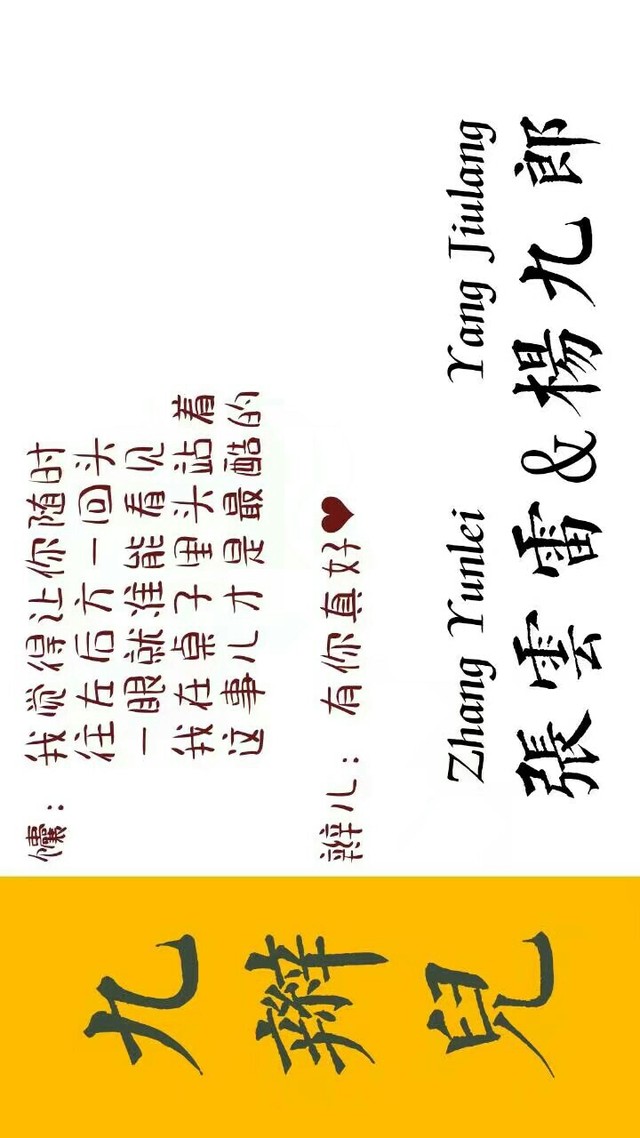 九辮兒
儾：我觉得让你随时
往左后方一回头
一眼就准能看见
我在桌子里头站着
这事儿才是最酷的
辫儿：有你真好♥
Zhang Yunlei Yang Jiulang
張雲雷&楊九郎